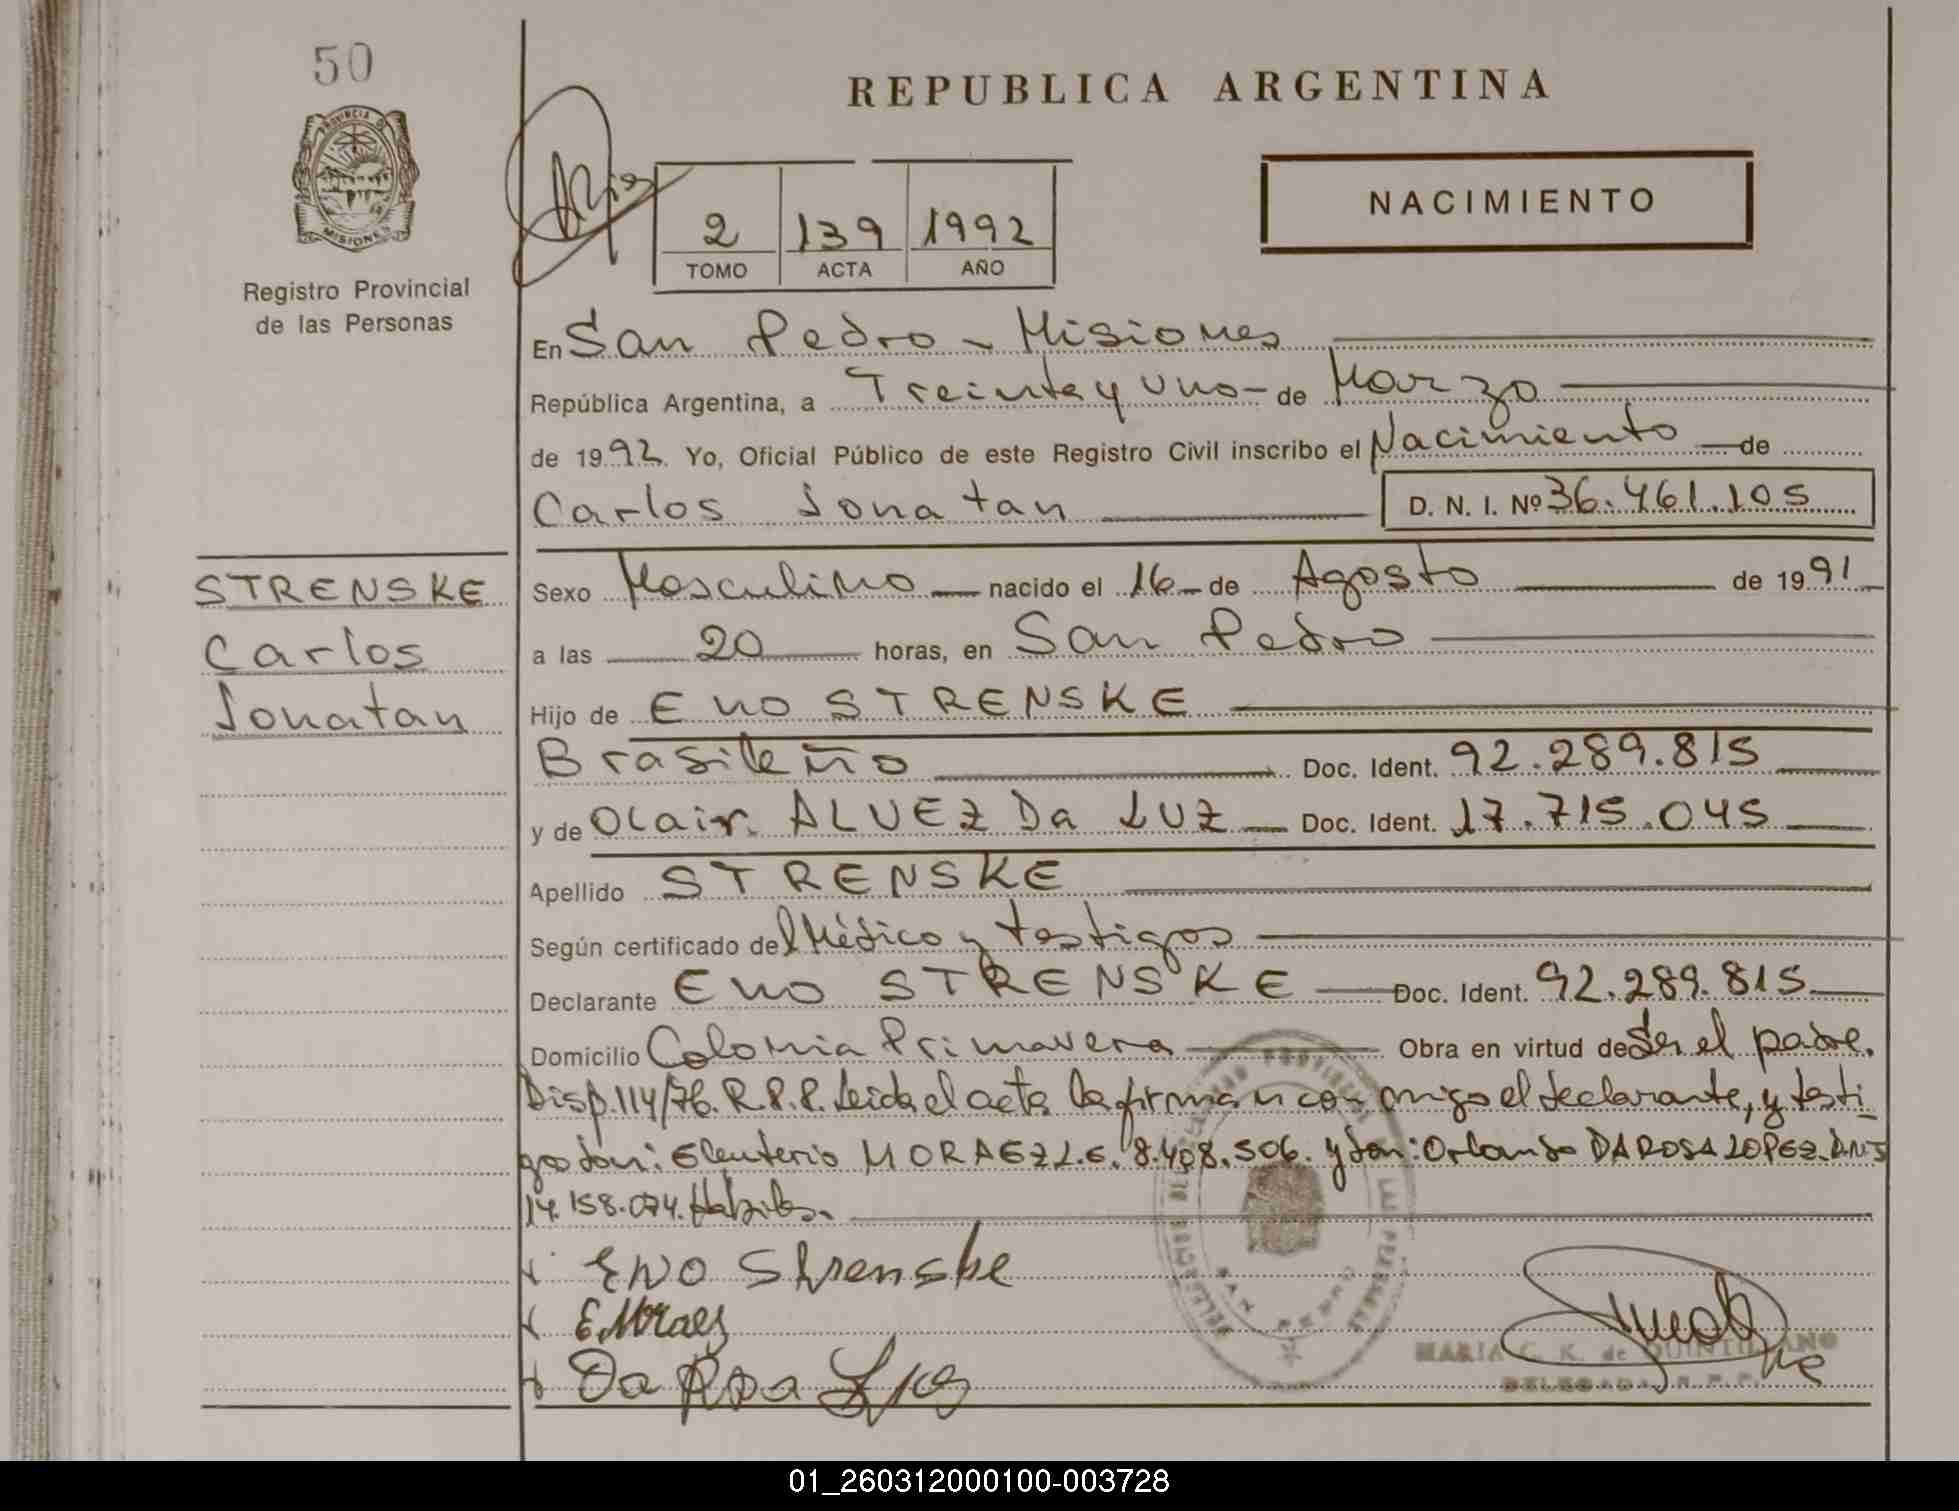 50
REPUBLICA ARGENTINA
PROVINCIA DE
MISIONES
Registro Provincial
de las Personas
NACIMIENTO
2 139 1992
TOMO ACTA AÑO
En San Pedro - Misiones
República Argentina, a Treinta y uno - de Marzo
de 1992 Yo, Oficial Público de este Registro Civil inscribo el Nacimiento de
Carlos Jonatan D. N. I. Nº 36.461.105
STRENSKE
Carlos
Jonatan
Sexo Masculino nacido el 16 de Agosto de 1991
a las 20 horas, en San Pedro
Hijo de Eno STRENSKE
Brasileño Doc. Ident. 92.289.815
y de Olair ALVEZ Da LUZ Doc. Ident. 17.715.045
Apellido STRENSKE
Según certificado del Médico y testigos
Declarante Eno STRENSKE Doc. Ident. 92.289.815
Domicilio Colonia Primavera Obra en virtud de Ser el padre.
Disp. 114/76. R.P.P. Leida el acta la firman conmigo el declarante, y testi
gos don: Eleuterio MORAEZ L.E. 8.408.506. y don: Orlando DA ROSA LOPEZ. D.N.I
14.158.074. Habiles.
Eno Strenske
E. Moraez
Da Rosa
SAN PEDRO
MARIA C. K. de QUINTILANO
DELEGADA R.P.P.
01_260312000100-003728